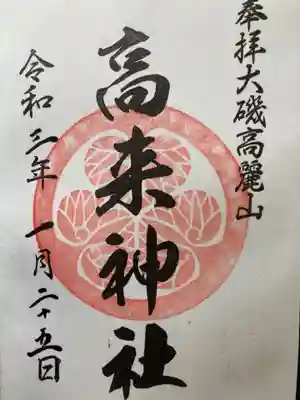 奉拝大磯高麗山
高来神社
令和三年一月二十五日